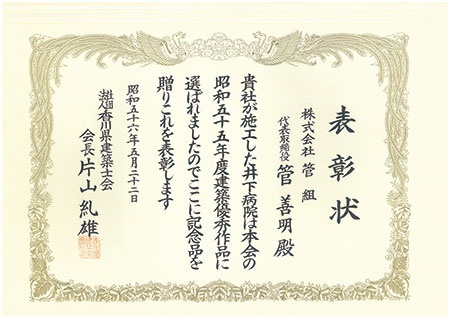 表彰状
株式会社 管組
代表取締役 管善明殿
貴社が施工した井下病院は本会の
昭和五十五年度建築優秀作品に
選ばれましたのでここに記念品を
贈りこれを表彰します
昭和五十六年五月二十二日
社団法人香川県建築士会
会長 片山糺雄